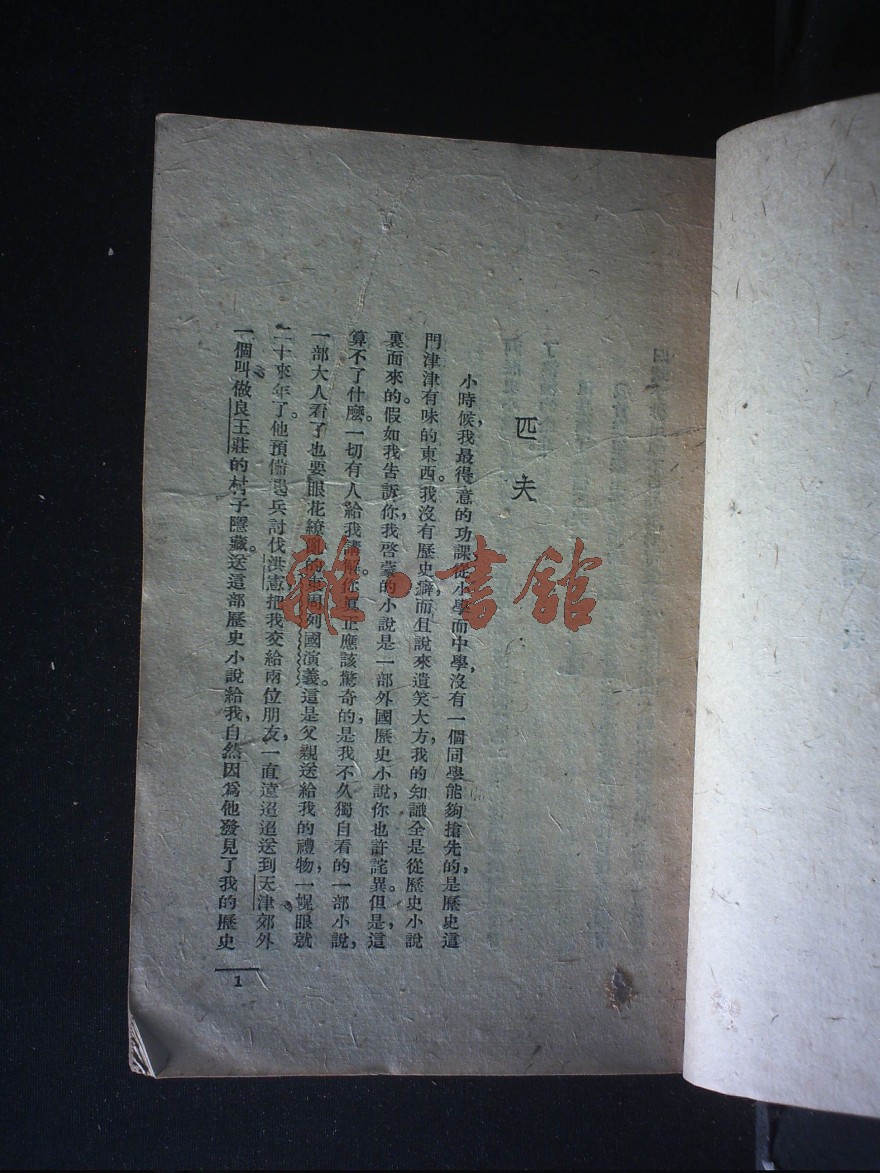 匹夫
小時候，我最得意的功課，從小學而中學，沒有一個同學能夠搶先的，是歷史這
門津津有味的東西。我沒有歷史癖，而且說來遺笑大方，我的知識全是從歷史小說
裏面來的。假如我告訴你，我啓蒙的小說是一部外國歷史小說，你也許詫異。但是，這
算不了什麼。一切有人給我講解。你眞正應該驚奇的，是我不久獨自看的一部小說，
一部大人看了也要眼花繚亂的東周列國演義。這是父親送給我的禮物，一提眼就
二十來年了。他預備起兵討伐洪憲，把我交給兩位朋友，一直遠迢迢送到天津郊外
一個叫做良王莊的村子隱藏。送這部歷史小說給我，自然因爲他發見了我的歷史
1
雜·書館